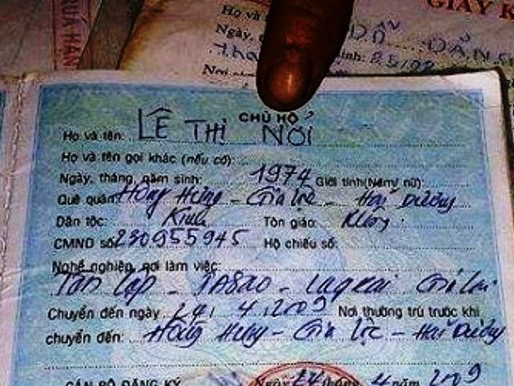 GIẤY K
Họ và
Ngày,
25/02
Nơi
CHỦ HỘ
Họ và tên: LÊ THỊ NỞI
Họ và tên gọi khác (nếu có):
Ngày, tháng, năm sinh: 1974 Giới tính (Nam/ nữ):
Quê quán: Hồng Hưng - Gia Lộc - Hải Dương
Dân tộc: Kinh Tôn giáo: Không
CMND số: 230955945 Hộ chiếu số:
Nghề nghiệp, nơi làm việc:
Tân Lập - IASao - Iagrai Gia Lai
Chuyển đến ngày 24/ 4. 2009 Nơi thường trú trước khi
chuyển đến: Hồng Hưng - Gia Lộc - Hải Dương
CÁN BỘ ĐĂNG KÝ Ngày 24 tháng 4 năm 2009